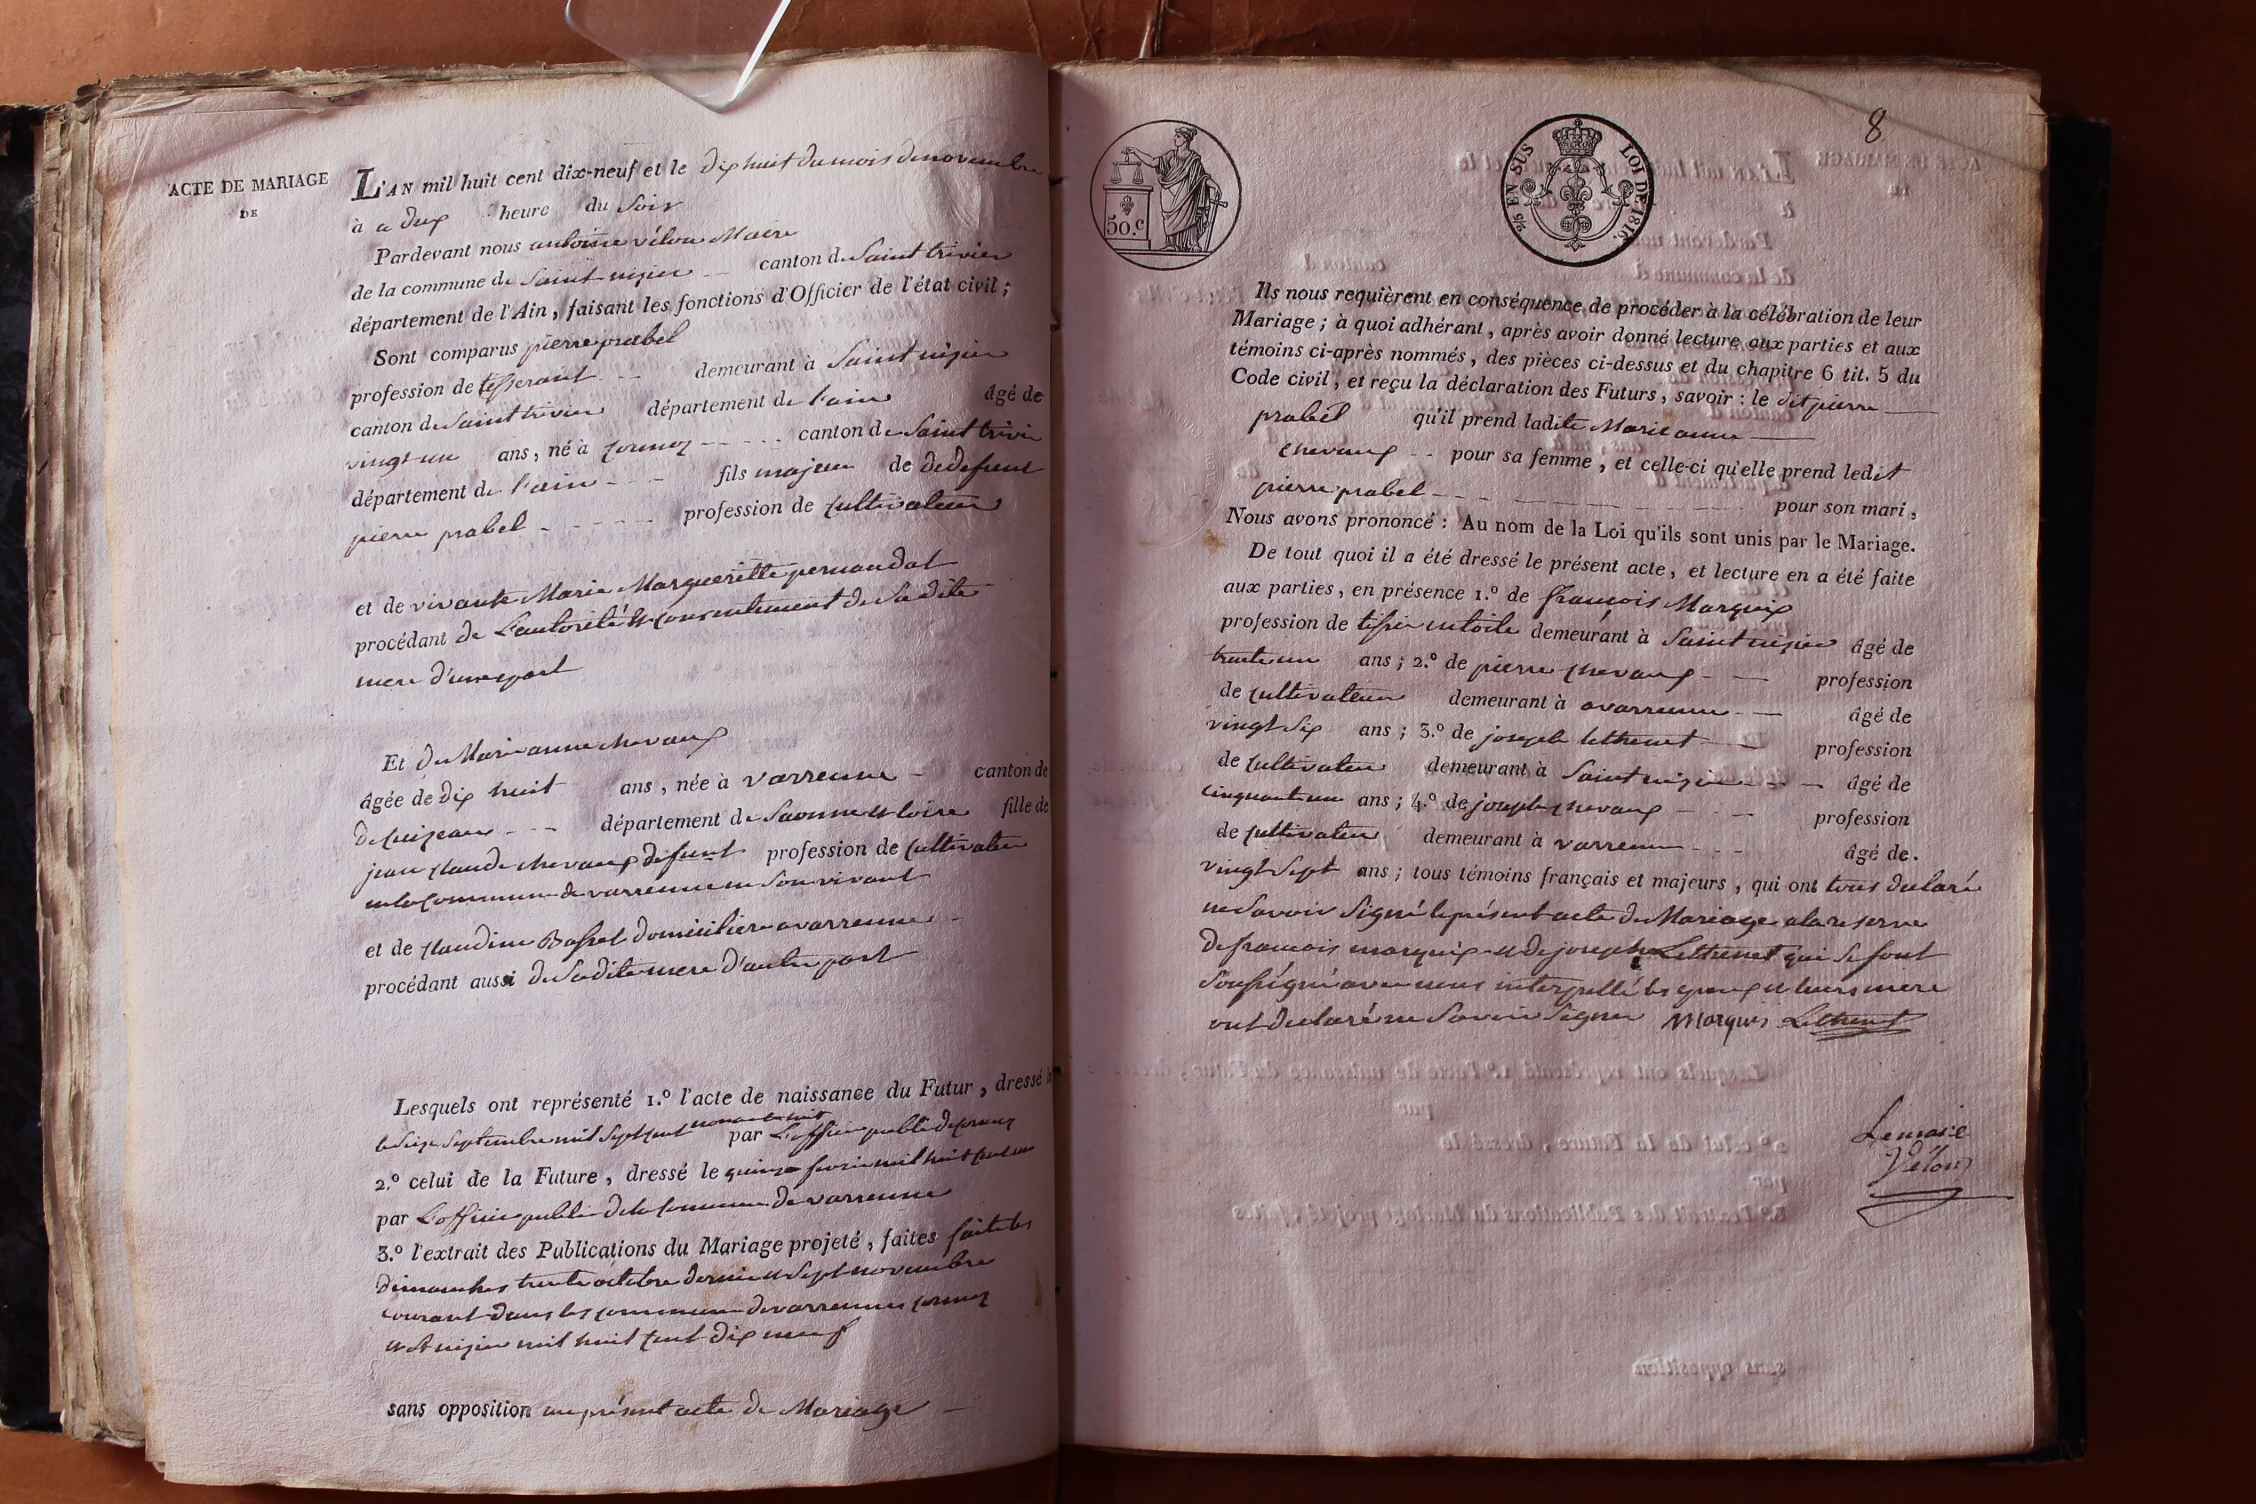 ACTE DE MARIAGE
DE
L'AN mil huit cent dix-neuf et le dix huit du mois de novembre
à a dux heure du Soir
Pardevant nous antoine vélon Maire
de la commune de Saint nizier canton de Saint trivier
département de l'Ain, faisant les fonctions d'Officier de l'état civil ;
Sont comparus pierre prabel
profession de tesserant demeurant à Saint nizier
canton de Saint trivier département de l'ain âgé de
vingt un ans, né à cormoz canton de Saint trivier
département de l'ain fils majeur de de defunt
pierre prabel profession de cultivateur
et de vivante Marie Margueritte pernaudat
procédant de L'autorité & consentement de Sa dite
mere d'une part
Et de Marie anne chevaux
âgée de dix huit ans, née à varrenne canton de
de cuizeaux département de Saonne et loire fille de
jean claude chevaux defunt profession de cultivateur
en la commune de varrenne en Son vivant
et de claudine Basset domiciliere a varrenne
procédant aussi de Sa dite mere d'autre part
Lesquels ont représenté 1.º l'acte de naissance du Futur, dressé le
le Seize Septembre mil Sept cent nonante huit par L'officier public de cormoz
2.º celui de la Future, dressé le quinze fevrier mil huit cent un
par L'officier public de la commune de varrenne
3.º l'extrait des Publications du Mariage projeté, faites faite les
dimanches trente octobre dernier et Sept novembre
courant dans les commune de varrennes cormoz
et St nizier mil huit cent dix neuf
sans opposition au présent acte de Mariage
8
50.c
2/5 EN SUS LOI DE 1816.
Ils nous requièrent en conséquence de procéder à la célébration de leur
Mariage ; à quoi adhérant, après avoir donné lecture aux parties et aux
témoins ci-après nommés, des pièces ci-dessus et du chapitre 6 tit. 5 du
Code civil, et reçu la déclaration des Futurs, savoir : le dit pierre
prabel qu'il prend ladite Marie anne
chevaux pour sa femme, et celle-ci qu'elle prend ledit
pierre prabel pour son mari,
Nous avons prononcé : Au nom de la Loi qu'ils sont unis par le Mariage.
De tout quoi il a été dressé le présent acte, et lecture en a été faite
aux parties, en présence 1.º de françois Marquix
profession de tissier en toile demeurant à Saint nizier âgé de
trente un ans ; 2.º de pierre chevaux profession
de cultivateur demeurant à a varrenne âgé de
vingt Six ans ; 3.º de joseph lethenet profession
de cultivateur demeurant à Saint nizier âgé de
cinquante un ans ; 4.º de joseph chevaux profession
de cultivateur demeurant à varrenne âgé de.
vingt Sept ans ; tous témoins français et majeurs, qui ont tous declaré
ne Savoir Signé le présent acte de Mariage a la reserve
de francois marquix et de joseph Lethenet qui Se font
Soussigné avec nous interpellé les epoux et leurs mere
ont declaré ne Savoir Signer Marquis Lethenet
Le maire
Vélon